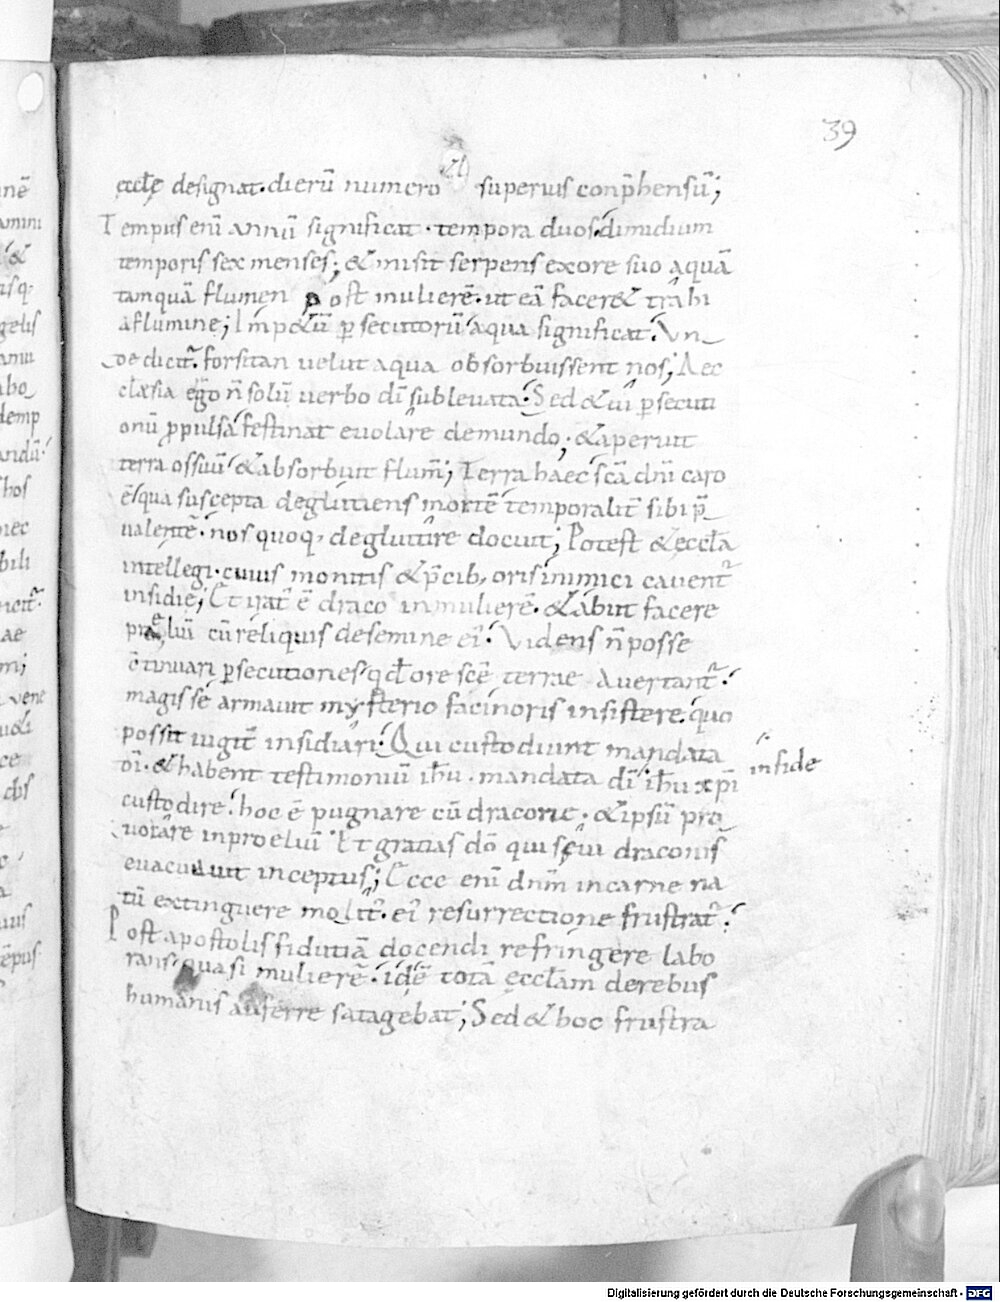 39
eccłę designat. dierũ numero superius conp̄hensũ;
Tempus enĩ annũ significat. tempora duos. dimidium
temporis sex menses; & misit serpens ex ore suo aquã
tamquã flumen post mulierẽ. ut eã facer& trahi
a flumine; Imp&ũ persecutorũ aqua significat. Un
de dicit̃. forsitan velut aqua obsorbuissent nos; Aec
clæsia ergo ñ solũ verbo dĩ sublevata. Sed & vi persecuti
onũ propulsa festinat evolare de mundo; & aperuit
terra os suũ & absorbuit flumẽ; Terra haec sc̄a dnĩ caro
ẽ qua suscepta deglutiens mortẽ temporalit̃ sibi p̄
valentẽ. nos quoq, deglutire docuit; Potest & eccła
intellegi. cuius monitis & p̄cib, oris inimici cavent̃
insidię; Et irat̃ ẽ draco in mulierẽ. & abiit facere
prelium cũ reliquis de semine ei. Videns ñ posse
c̃tinuari persecutiones q d̄ ore sc̄ę terrae avertant̃.
magis se armavit mysterio facinoris insistere. quo
possit iugit̃ insidiari. Qui custodiunt mandata
dĩ. & habent testimoniũ ihũ. mandata dĩ ihũ xpĩ
in fide
custodire. hoc ẽ pugnare cũ dracone. & ipsũ pro
vocare in proeliũ Et gratias dõ qui sęvi draconis
evacuavit inceptus; Ecce enĩ dnm̃ in carne na
tũ extinguere molit̃. ei resurrectione frustrat̃.
Post apostolis fidutiã docendi refringere labo
rans quasi mulierẽ. idẽ totã eccłam de rebus
humanis auferre satagebat; Sed & hoc frustra
Digitalisierung gefördert durch die Deutsche Forschungsgemeinschaft - DFG